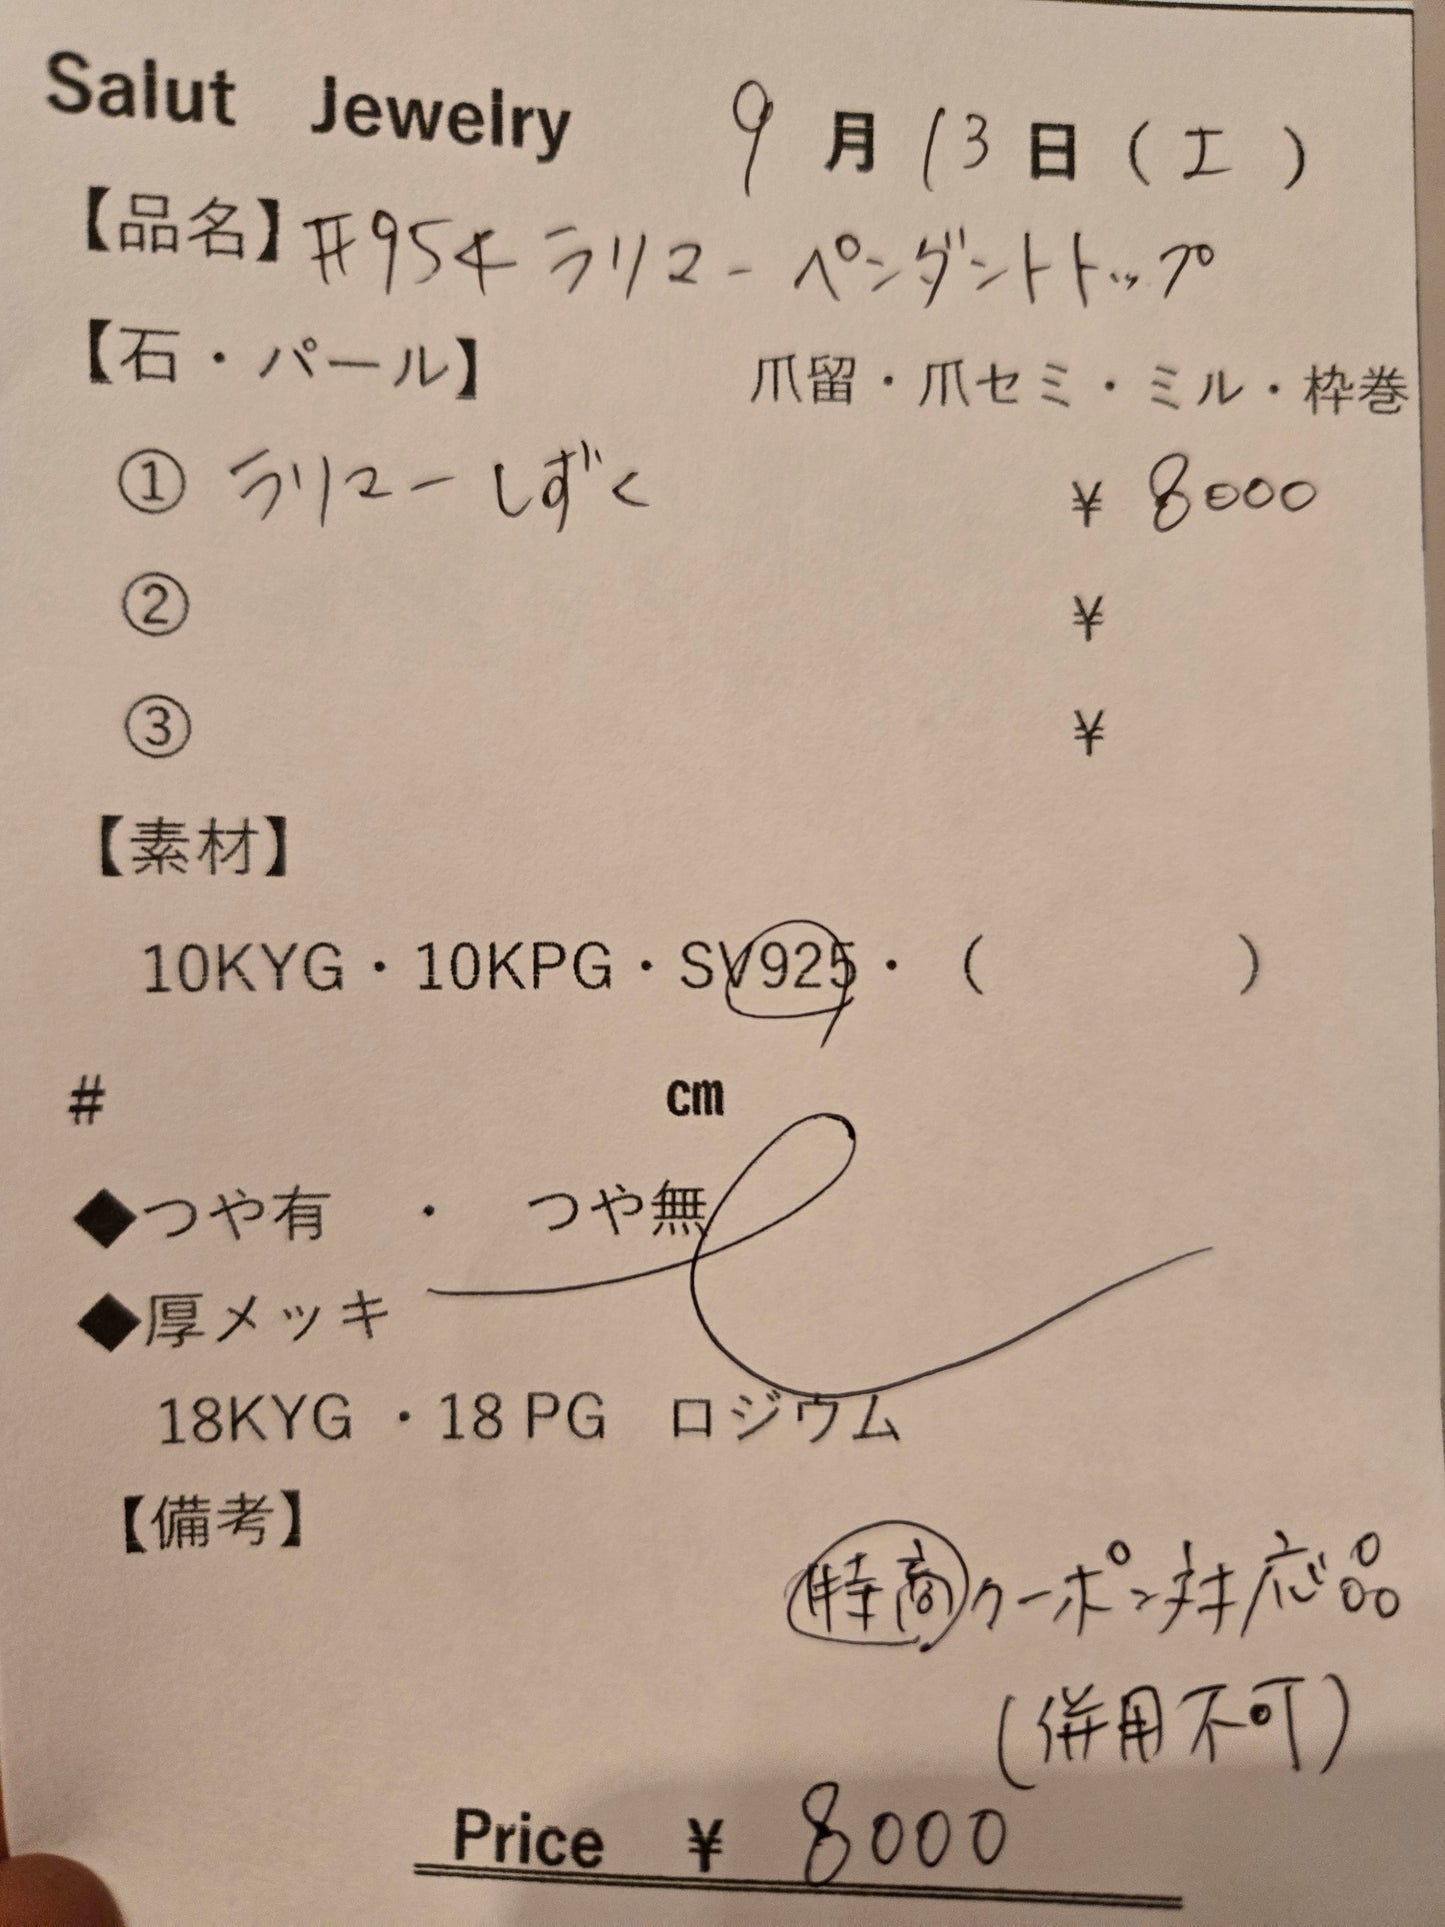 Salut Jewelry 9月13日(土)
【品名】#954 ラリマー ペンダントトップ
【石・パール】 爪留・爪セミ・ミル・枠巻
① ラリマー しずく ¥8000
② ¥
③ ¥
【素材】
10KYG・10KPG・SV925・( )
# cm
◆つや有 ・ つや無
◆厚メッキ
18KYG ・18 PG ロジウム
【備考】
特商クーポン対応品
(併用不可)
Price ¥ 8000